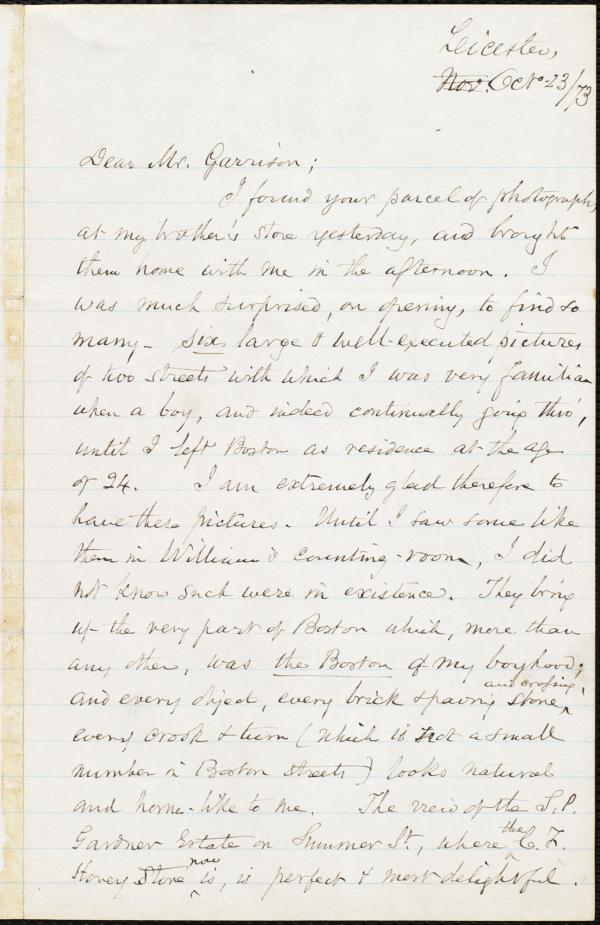 Leicester,
Nov. Oct. 23/73
Dear Mr. Garrison;
I found your parcel of photographs,
at my brother's store yesterday, and brought
them home with me in the afternoon. I
was much surprised, on opening, to find so
many - six large & well-executed pictures
of two streets with which I was very familiar
when a boy, and indeed continually going thro',
until I left Boston as residence at the age
of 24. I am extremely glad therefore to
have these pictures. Until I saw some like
them in William's counting-room, I did
not know such were in existence. They bring
up the very part of Boston which, more than
any other, was the Boston of my boyhood;
and every object, every brick & paving stone, and crossing,
every crook & turn (which is not a small
number in Boston streets) looks natural
and home-like to me. The view of the S.P.
Gardner Estate on Summer St., where the C. F.
Hovey Store now is, is perfect & most delightful.